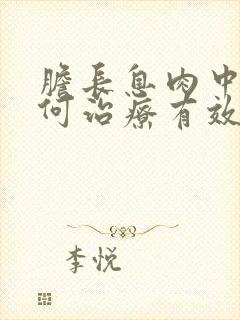 膽長息肉中
何治療有效
李悦